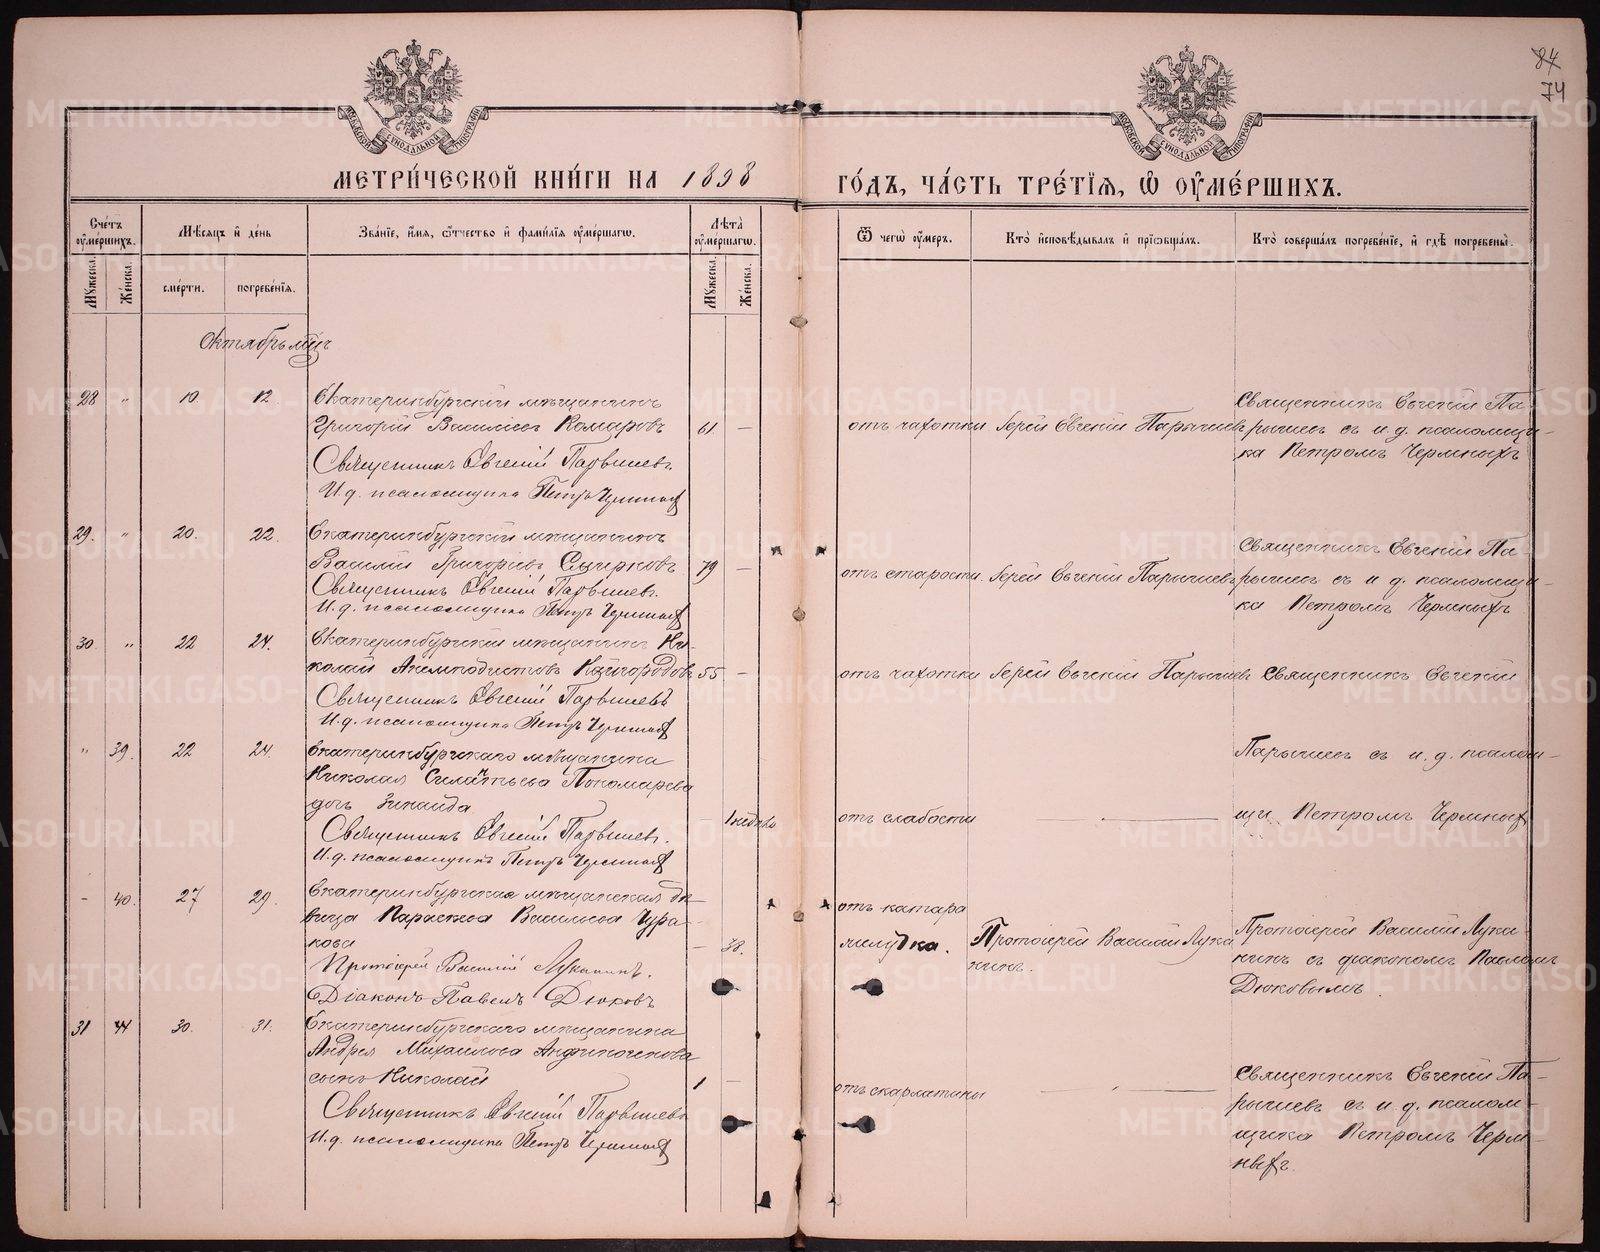 84
74
МОСКОВСКОЙ СѴНОДАЛЬНОЙ ТИПОГРАФІИ
МОСКОВСКОЙ СѴНОДАЛЬНОЙ ТИПОГРАФІИ
МЕТРИ́ЧЕСКОЙ КНИ́ГИ НА 1898
ГО́ДЪ, ЧА́СТЬ ТРЕ́ТІѦ, Ѽ ОУ҆МЕ́РШИХЪ.
Сче́тъ оу҆ме́ршихъ.
Мѣ́сѧцъ и҆ де́нь
Зва́нїе, и҆́мѧ, ѻ҆́тчество и҆ фами́лїѧ оу҆ме́ршагѡ.
Лѣ́та оу҆ме́ршагѡ.
Ѿ чегѡ̀ оу҆́меръ.
Кто̀ и҆сповѣ́дывалъ и҆ прїѡбща́лъ.
Кто̀ соверша́лъ погребе́нїе, и҆ гдѣ̀ погребены̀.
Мꙋ́жеска.
Же́нска.
сме́рти.
погребе́нїѧ.
Мꙋ́жеска.
Же́нска.
Октябрь мцъ
28 " 10 12 Екатеринбургскій мѣщанинъ
Григорій Василіевъ Комаровъ 61 —
Священникъ Евгеній Парышевъ.
И. д. псаломщика Петръ Чермныхъ
отъ чахотки Іерей Евгеній Парышевъ
Священникъ Евгеній Па-
рышевъ съ и. д. псаломщи-
ка Петромъ Чермныхъ
29. " 20. 22. Екатеринбургскій мѣщанинъ
Василій Григоріевъ 79 —
Священникъ Евгеній Парышевъ.
И. д. псаломщика Петръ Чермныхъ
отъ старости. Іерей Евгеній Парышевъ
Священникъ Евгеній Па-
рышевъ съ и. д. псаломщи-
ка Петромъ Чермныхъ
30 " 22 24. Екатеринбургскій мѣщанинъ Ни-
колай Анемподистовъ Кайгородовъ 55 —
Священникъ Евгеній Парышевъ
И. д. псаломщика Петръ Чермныхъ
отъ чахотки Іерей Евгеній Парышевъ Священникъ Евгеній
" 39. 22 24. Екатеринбургскаго мѣщанина
Николая Силантьева Пономарева
дочь Зинаида
1 недѣл.
Священникъ Евгеній Парышевъ.
И. д. псаломщик Петръ Чермныхъ
отъ слабости —
Парышевъ съ и. д. псалом-
щи Петромъ Чермныхъ
- 40. 27 29. Екатеринбургская мѣщанская дѣ-
вица Параскева Васильева Чура-
кова — 38.
Протоіерей Василій Луканинъ.
Діаконъ Павелъ Дюковъ
отъ катара
желудка.
Протоіерей Василій Лука-
нинъ.
Протоіерей Василій Лука-
нинъ съ діакономъ Павломъ
Дюковымъ.
31 41 30. 31. Екатеринбургскаго мѣщанина
Андрея Михаилова Андриногенова
сынъ Николай 1 —
Священникъ Евгеній Парышевъ
И. д. псаломщика Петръ Чермныхъ
отъ скарлатины —
Священникъ Евгеній Па-
рышевъ съ и. д. псалом-
щика Петромъ Черм-
ныхъ.
METRIKI.GASO-URAL.RU